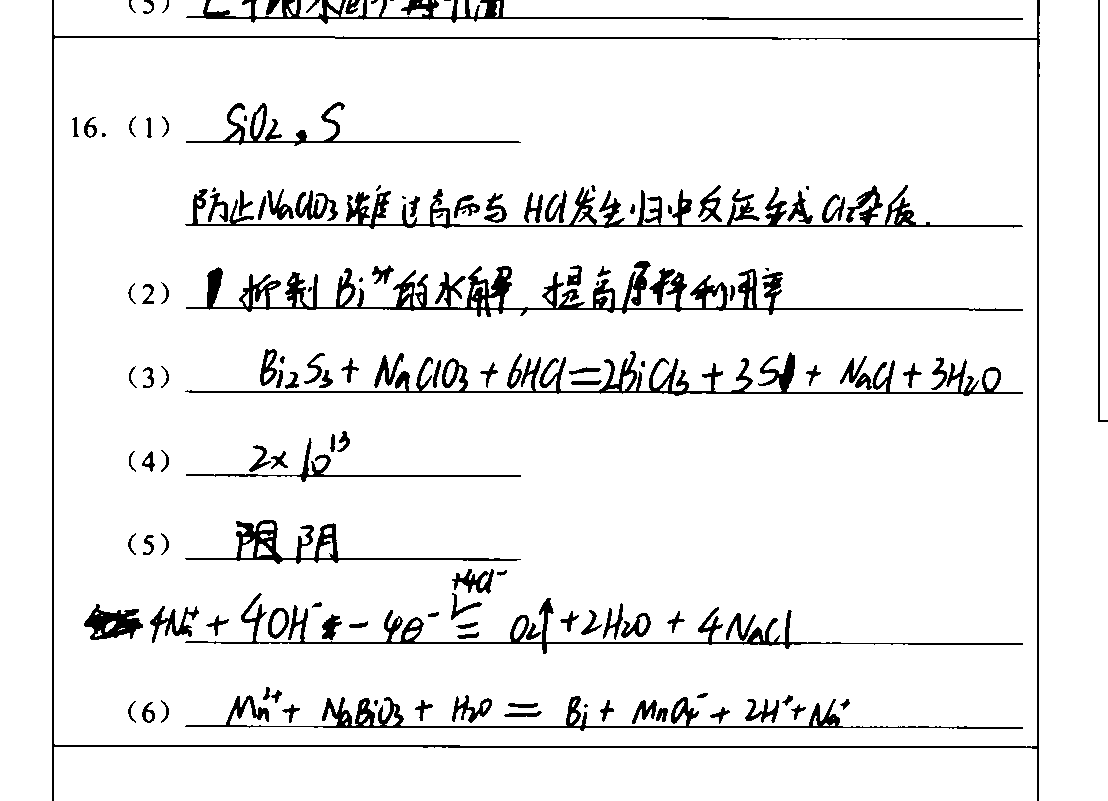 (5)
16. (1) SiO2, S
防止NaClO3浓度过高而与HCl发生归中反应生成Cl2杂质.
(2) 抑制Bi³⁺的水解,提高原料利用率
(3) Bi2S3 + NaClO3 + 6HCl = 2BiCl3 + 3S + NaCl + 3H2O
(4) 2×10¹³
(5) 阴
+4Cl⁻
4Na⁺ + 4OH⁻ - 4e⁻ = O2↑ + 2H2O + 4NaCl
(6) Mn²⁺ + NaBiO3 + H2O = Bi + MnO4⁻ + 2H⁺ + Na⁺